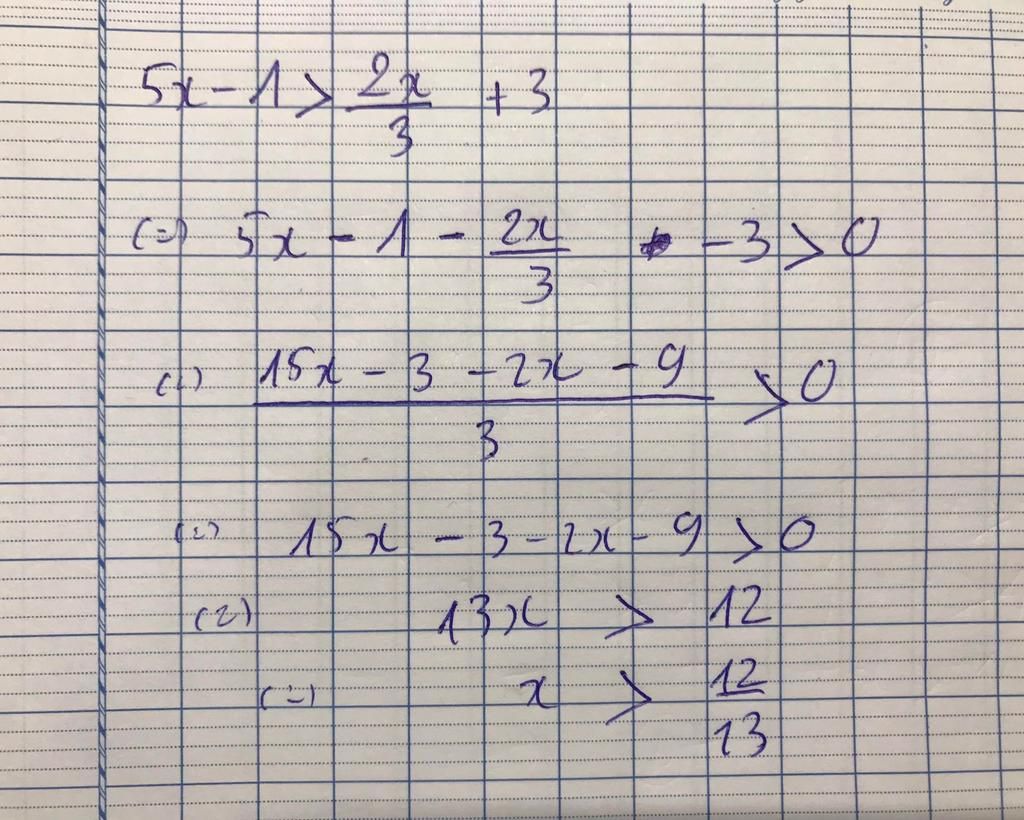 5x - 1 > 2x/3 + 3
(=) 5x - 1 - 2x/3 - 3 > 0
(=) (15x - 3 - 2x - 9)/3 > 0
(=) 15x - 3 - 2x - 9 > 0
(=) 13x > 12
(=) x > 12/13